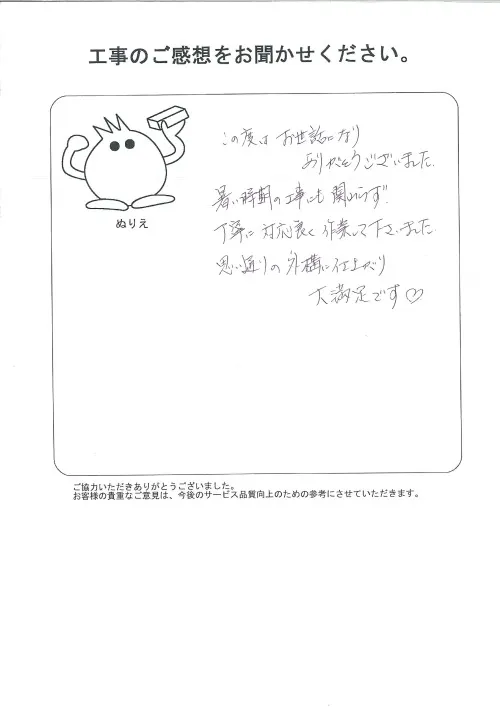 工事のご感想をお聞かせください。
ぬりえ
この度は お世話になり
ありがとうございました。
暑い時期の工事にも関わらず、
丁寧に 対応良く 作業して下さいました。
思い通りの 外構に仕上がり
大満足です♡
ご協力いただきありがとうございました。
お客様の貴重なご意見は、今後のサービス品質向上のための参考にさせていただきます。